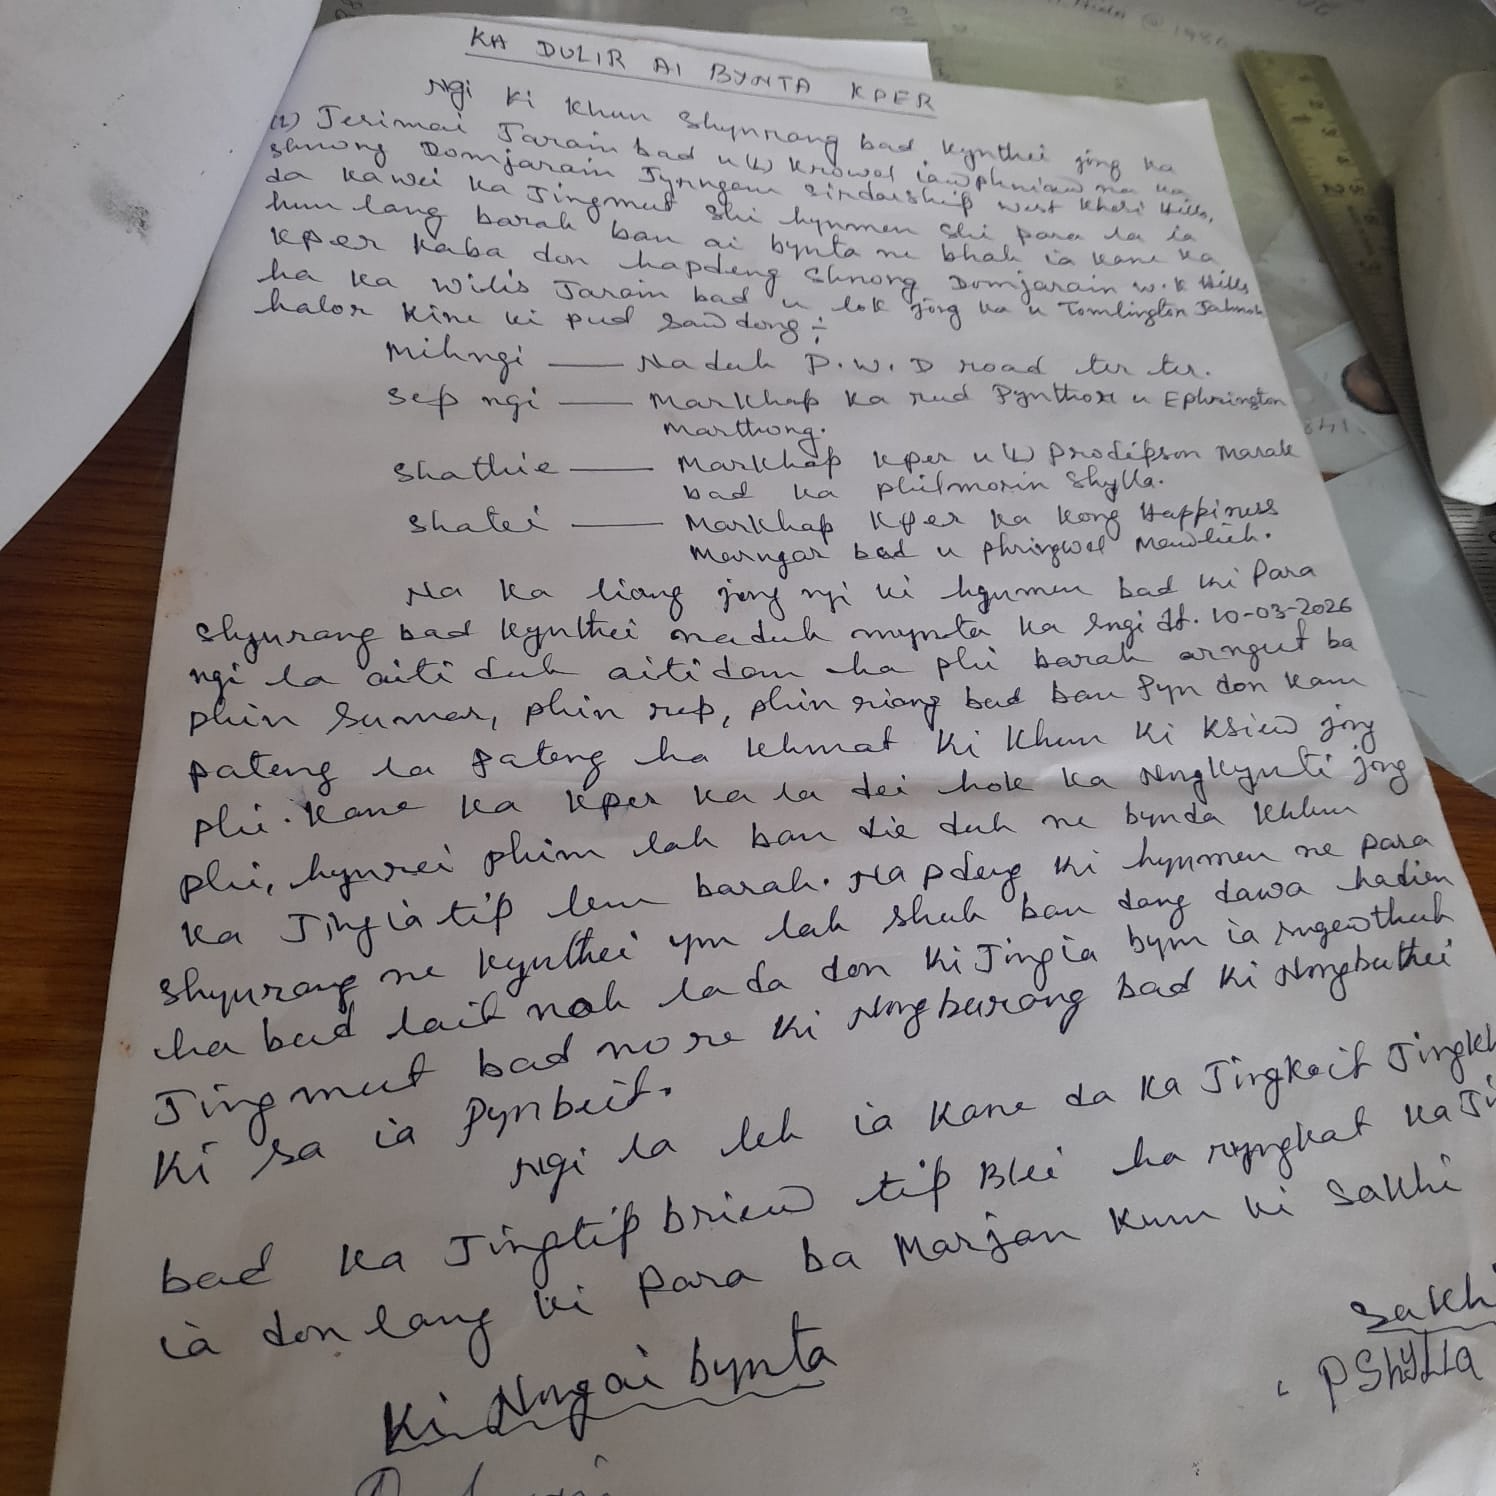 KA DULIR AI BYNTA KPER
Ngi ki khun shynrang bad kynthei jong ka
(L) Jerimai Jarain bad u (L) Krowel iawphniaw na ka
shnong Domjarain Jyrngam Sirdarship West Khasi Hills,
da kawei ka Jingmut shi hynmen shi para la ia
hun lang barah ban ai bynta ne bhah ia kane ka
kper kaba don hapdeng Shnong Domjarain W.K Hills
ha ka Wilis Jarain bad u lok jong ka u Tomlington
halor kine ki pud sawdong :-
Mihngi — Naduh P.W.D road ter ter.
Sep ngi — Markhap ka rud Pynthor u Ephrington
Marthong.
Shathie — Markhap kper u (L) Prodipson Marak
bad ka Philmorin Shylla.
Shatei — Markhap kper ka kong Happiness
Marngar bad u Phringwel Mawlieh.
Na ka liang jong ngi ki hynmen bad ki Para
Shynrang bad kynthei naduh mynta ka sngi dt. 10-03-2026
ngi la aiti duh aiti dam ha phi barah arngut ba
phin Sumar, phin rep, phin riang bad ban pyn don kam
pateng la pateng ha khmat ki khun ki ksiew jong
phi. Kane ka kper ka la dei hok ka Nongkynti jong
phi, hynrei phim lah ban die duh ne bynda khlem
ka Jingiatip lem barah. Na pdeng ki hynmen ne para
shynrang ne kynthei ym lah shuh ban dang dawa hadien
ha bud lait noh lada don ki Jingia bym ia sngewthuh
Jingmut bad nore ki Nongburang bad ki Nongbuthei
ki sa ia pynbeit.
Ngi la leh ia kane da ka Jingkoit
bad ka Jingtip briew tip Blei ha ryngkat
ia don lang ki para ba Marjan kum ki Sakhi
Sakhi
Ki Nongai bynta
P Shylla